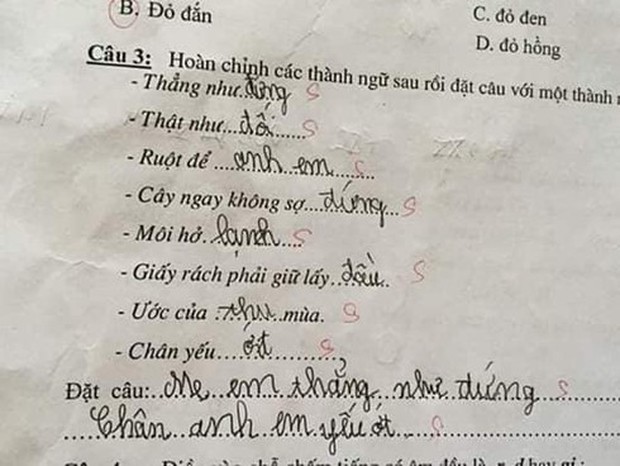 B. Đỏ đắn
C. đỏ đen
D. đỏ hồng
Câu 3: Hoàn chỉnh các thành ngữ sau rồi đặt câu với một thành
- Thẳng như đứng S
- Thật như...đối......S
- Ruột để ....anh..em...... S
- Cây ngay không sợ....đứng...S
- Môi hở. lạnh...S
- Giấy rách phải giữ lấy..đầu. S
- Ước của .thu..mùa. S
- Chân yếu....ớt.......... S
Đặt câu:..Mẹ..em..thẳng..như..đứng....S
....Chân..anh..em yếu ớt.....S